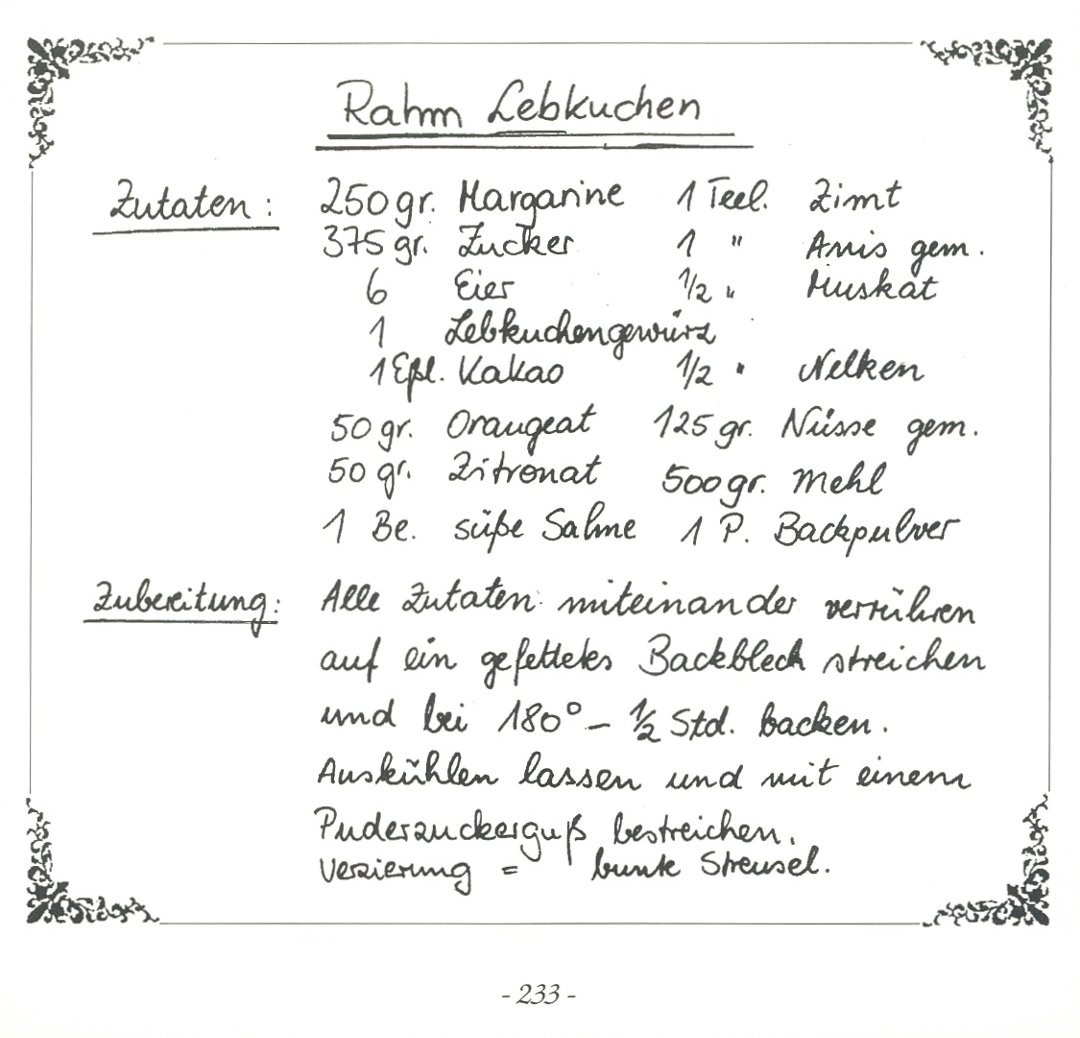 Rahm Lebkuchen
Zutaten: 250 gr. Margarine 1 Teel. Zimt
375 gr. Zucker 1 " Anis gem.
6 Eier 1/2 " Muskat
1 Lebkuchengewürz
1 Eßl. Kakao 1/2 " Nelken
50 gr. Orangeat 125 gr. Nüsse gem.
50 gr. Zitronat 500 gr. Mehl
1 Be. süße Sahne 1 P. Backpulver
Zubereitung: Alle Zutaten miteinander verrühren
auf ein gefettetes Backblech streichen
und bei 180° - 1/2 Std. backen.
Auskühlen lassen und mit einem
Puderzuckerguß bestreichen.
Verzierung = bunte Streusel.
- 233 -